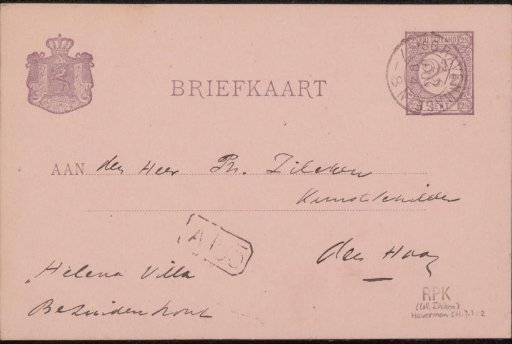 BRIEFKAART
AAN den Heer Ph. Zilcken
Kunstschilder
den Haag
"Helena Villa
Bezuidenhout
RPK
(coll. Zilcken)
Haverman